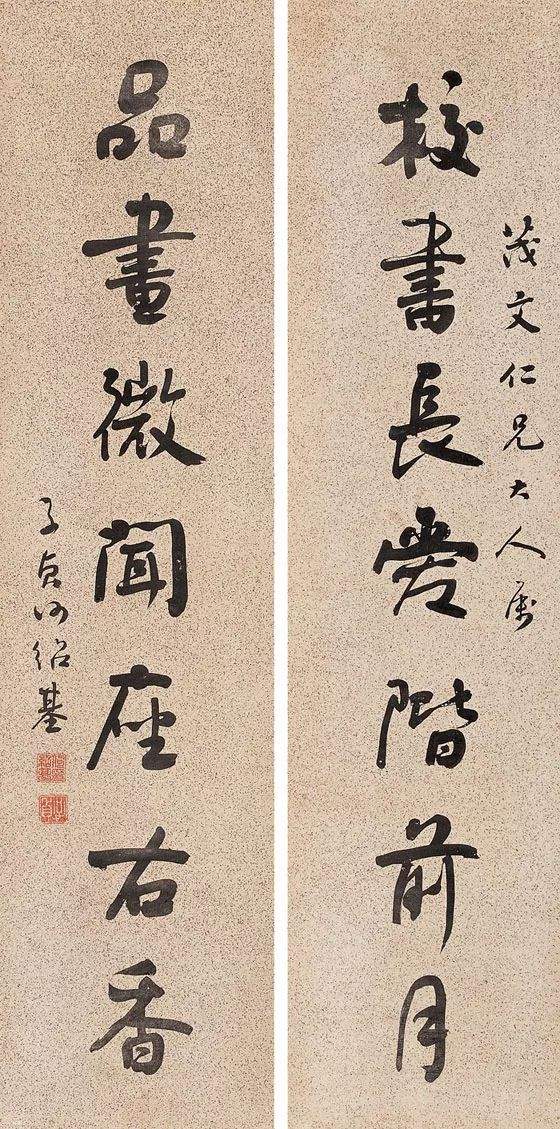 茂文仁兄大人属
校書長愛階前月
品畫微聞座右香
子貞何紹基